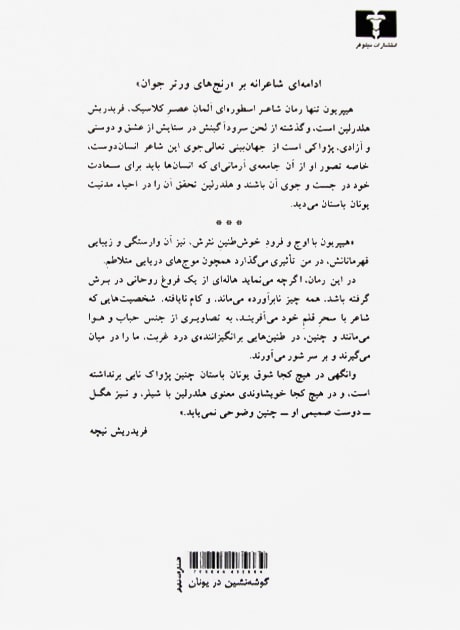 انتشارات نیلوفر
ادامه‌ای شاعرانه بر «رنج‌های ورتر جوان»
هیپریون تنها رمان شاعر اسطوره‌ای آلمان عصر کلاسیک، فریدریش
هلدرلین است، وگذشته از لحن سرودآگینش در ستایش از عشق و دوستی
و آزادی، پژواکی است از جهان‌بینی تعالی‌جوی این شاعر انسان‌دوست،
خاصه تصور او از آن جامعه‌ی آرمانی‌ای که انسان‌ها باید برای سعادت
خود در جست و جوی آن باشند و هلدرلین تحقق آن را در احیاء مدنیت
یونان باستان می‌دید.
* * *
«هیپریون با اوج و فرودِ خوش‌طنین نثرش، نیز آن وارستگی و زیبایی
قهرمانانش، در من تأثیری می‌گذارد همچون موج‌های دریایی متلاطم.
در این رمان، اگرچه می‌نماید هاله‌ای از یک فروغ روحانی در برش
گرفته باشد، همه چیز نابرآورده می‌ماند، و کام نایافته. شخصیت‌هایی که
شاعر با سحرِ قلمِ خود می‌آفریند، به تصاویری از جنس حباب و هوا
می‌مانند و چنین، در طنین‌هایی برانگیزاننده‌ی درد غربت، ما را در میان
می‌گیرند و بر سر شور می‌آورند.
وانگهی در هیچ کجا شوق یونان باستان چنین پژواک نابی برنداشته
است، و در هیچ کجا خویشاوندی معنوی هلدرلین با شیلر، و نسیز هگل
ــ دوست صمیمی او ــ چنین وضوحی نمی‌یابد.»
فریدریش نیچه
انتشارات نیلوفر
گوشه‌نشین در یونان